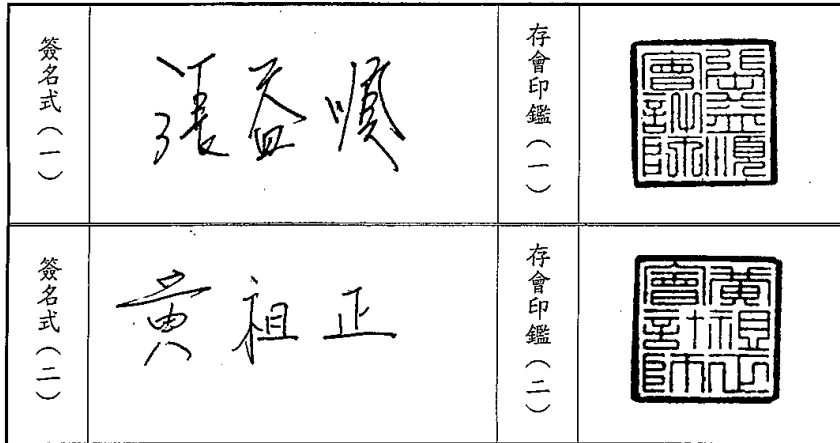 簽名式(一)
張益順
存會印鑑(一)
張益順會計師
簽名式(二)
黃祖正
存會印鑑(二)
黃祖正會計師